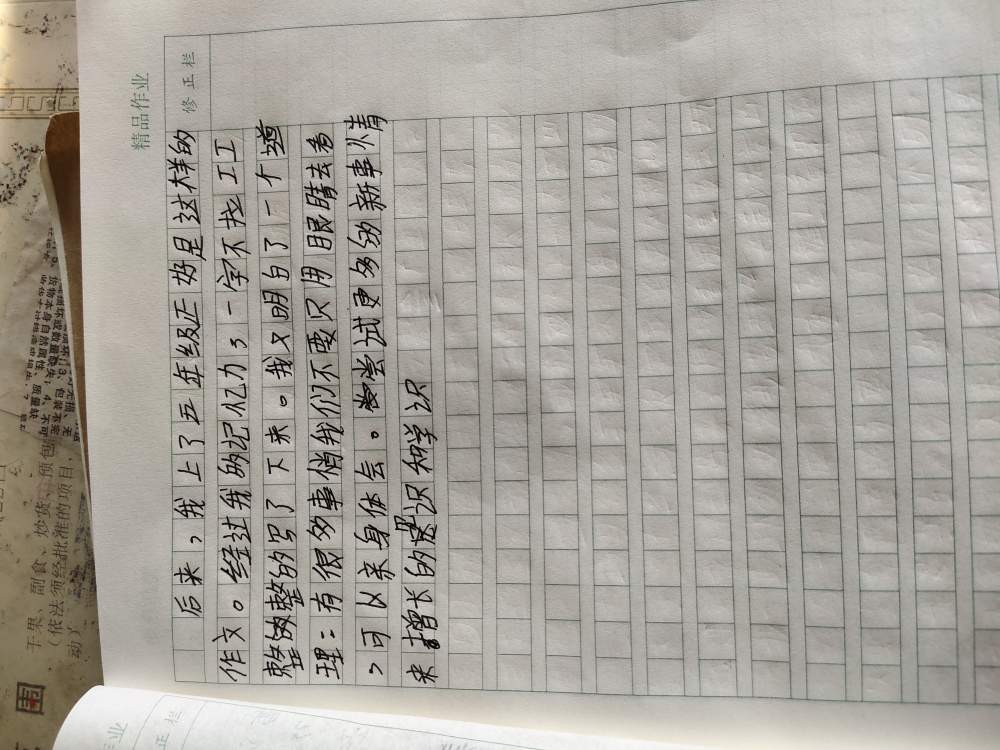 精品作业
修正栏
后来，我上了五年级正好是这样的
作文。经过我的记忆力，一字不拉工工
整整的写了下来。我又明白了一个道
理：有很多事情我们不要只用眼睛去看
，可以亲身体会。尝试更多的新事情
来增长的见识和学识
干果、副食、炒货、预包
（依法须经批准的项目，
动了
货物本身自然属性、质量缺
作业
正栏